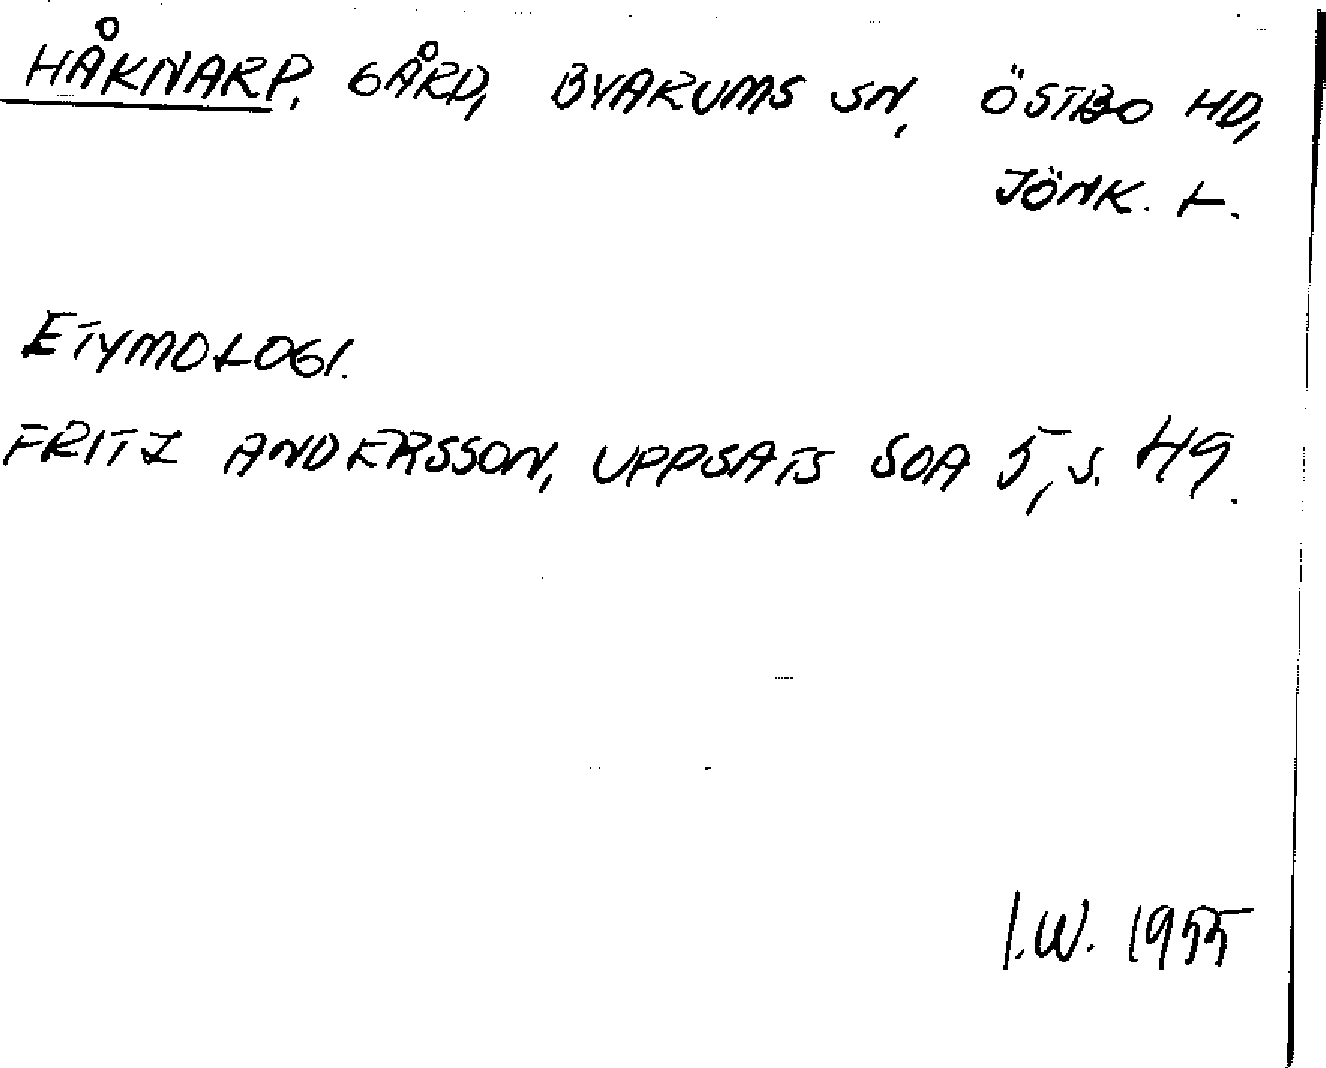 HÅKNARP, GÅRD, BYARUMS SN, ÖSTBO HD,
JÖNK. L.
ETYMOLOGI.
FRITZ ANDERSSON, UPPSATS SOA 5, S. 49.
I.W. 1955